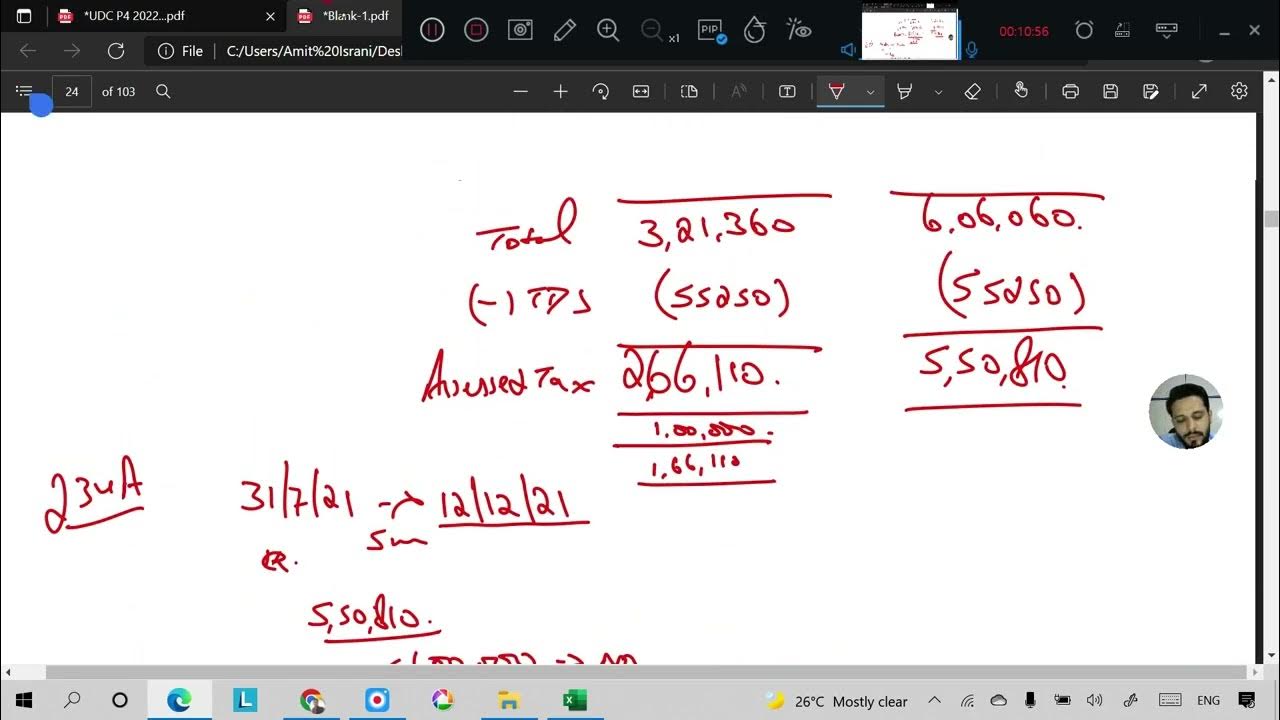 PDF PDF xi PIP 00:10:56
ers/Amit%20Israni/Des
24 of 103
Total 3,21,360 6,06,060.
(-) TDS (55250) (55250)
Assessed Tax 266,110. 5,50,810.
1,00,000.
1,66,110
234A 31/7/21 → 12/12/21
5m
5,50,810.
26°C Mostly clear ENG